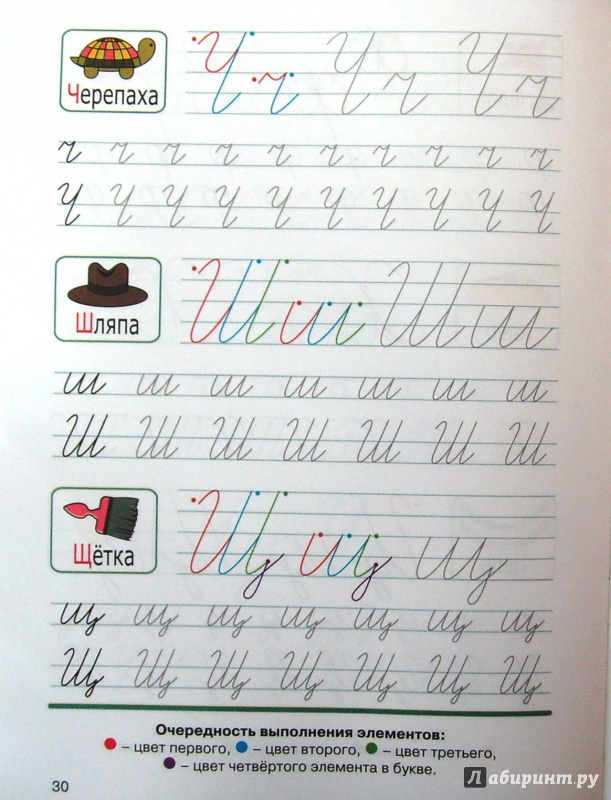 Ч ч Ч ч Ч ч
Черепаха
ч ч ч ч ч ч ч ч ч ч
Ч Ч Ч Ч Ч Ч Ч Ч Ч Ч
Ш ш Ш ш
Шляпа
ш ш ш ш ш ш ш
Ш Ш Ш Ш Ш Ш Ш
Щ щ щ
Щётка
щ щ щ щ щ щ щ
Щ Щ Щ Щ Щ Щ Щ
Очередность выполнения элементов:
– цвет первого, – цвет второго, – цвет третьего,
– цвет четвёртого элемента в букве.
30
Лабиринт.ру